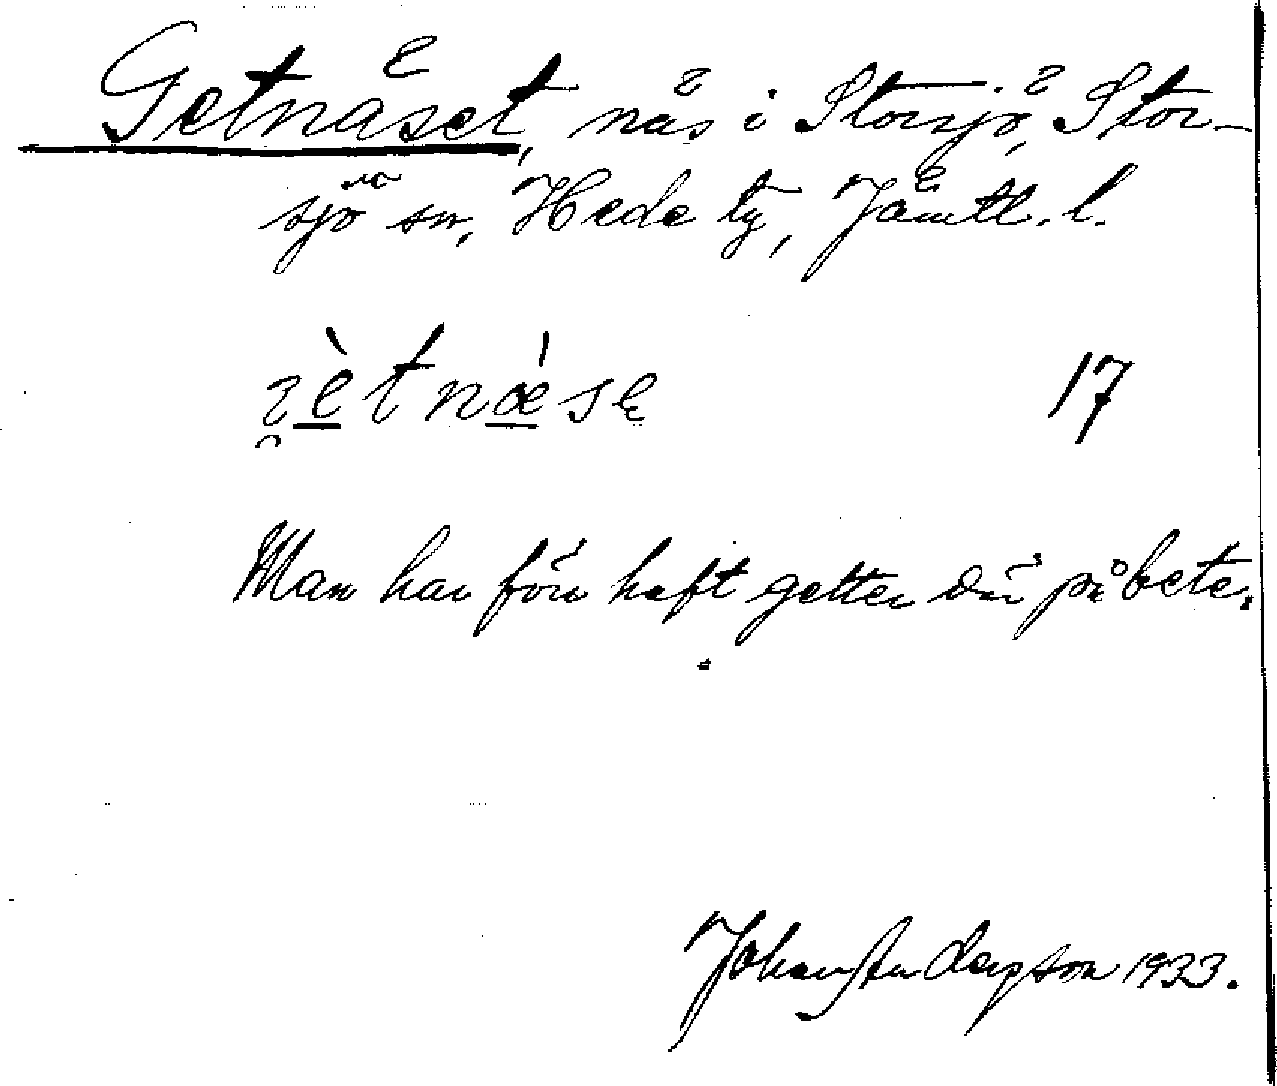 Getnäset, näs i Storsjö, Stor-
sjö sn, Hede tg, Jämtl. l.
ʒèt nǽsę 17
Man har förr haft getter där på bete.
Johan Anderson 1933.